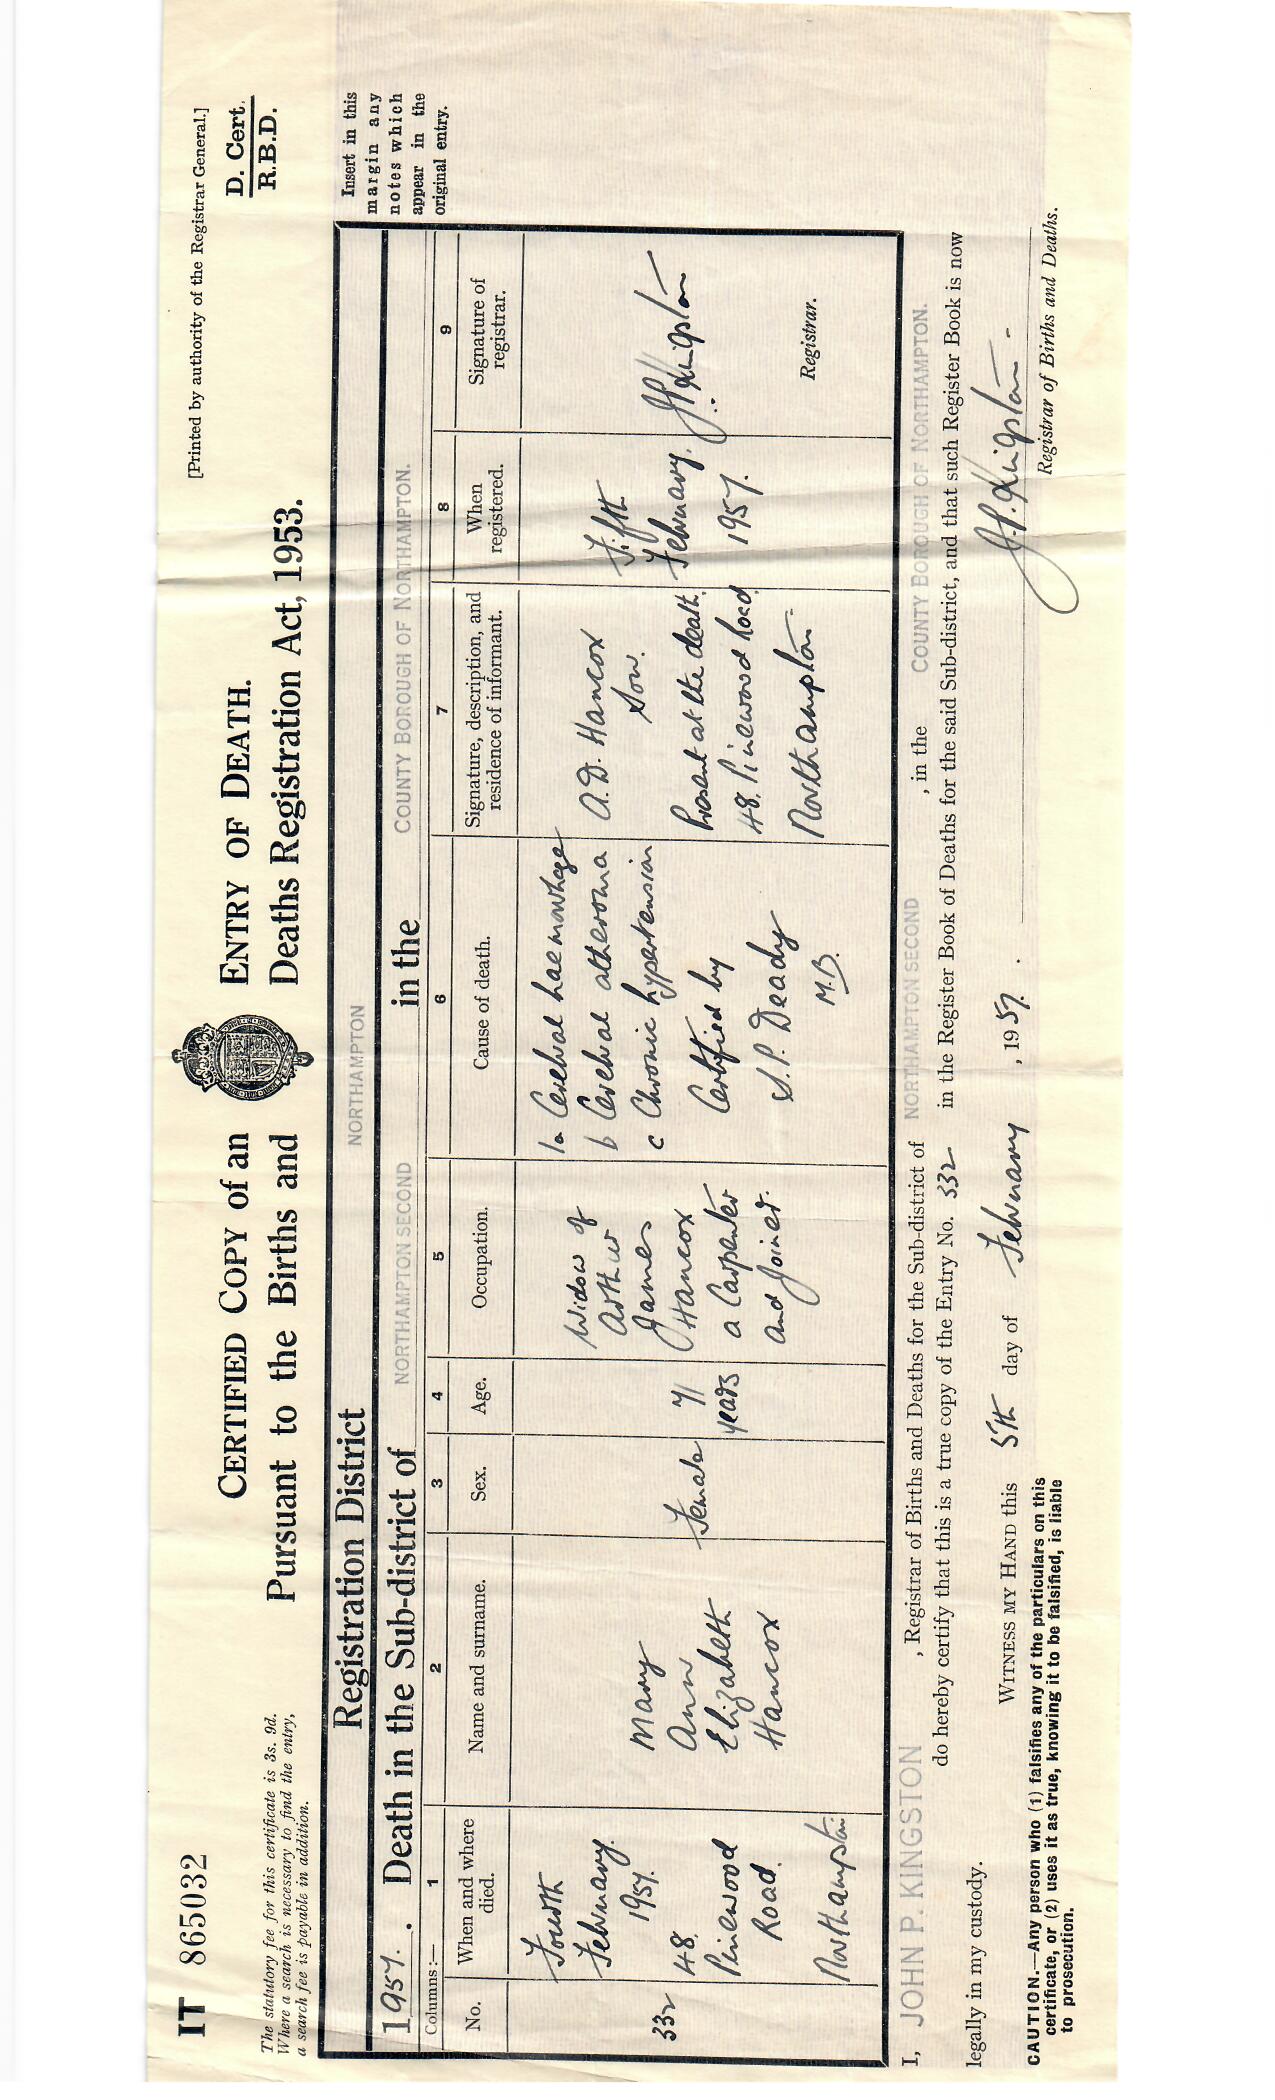 IT 865032
[Printed by authority of the Registrar General.]
The statutory fee for this certificate is 3s. 9d.
Where a search is necessary to find the entry,
a search fee is payable in addition.
CERTIFIED COPY of an ENTRY OF DEATH.
Pursuant to the Births and Deaths Registration Act, 1953.
D. Cert.
R.B.D.
Registration District NORTHAMPTON
1957. Death in the Sub-district of NORTHAMPTON SECOND in the COUNTY BOROUGH OF NORTHAMPTON.
Insert in this
margin any
notes which
appear in the
original entry.
Columns:— 1 2 3 4 5 6 7 8 9
No.
When and where
died.
Name and surname.
Sex.
Age.
Occupation.
Cause of death.
Signature, description, and
residence of informant.
When
registered.
Signature of
registrar.
332
Fourth
February
1957.
48.
Pinewood
Road.
Northampton
Mary
Ann
Elizabeth
Hancox
Female
71
years
Widow of
Arthur
James
Hancox
a Carpenter
and Joiner.
1a Cerebral haemorrhage
b Cerebral atheroma
c Chronic hypertension
Certified by
S.P. Deady
M.B.
A.D. Hancox
Son.
Present at the death.
48. Pinewood Road
Northampton.
Fifth
February,
1957.
J.P. Kingston
Registrar.
I, JOHN P. KINGSTON, Registrar of Births and Deaths for the Sub-district of NORTHAMPTON SECOND, in the COUNTY BOROUGH OF NORTHAMPTON.
do hereby certify that this is a true copy of the Entry No. 332 in the Register Book of Deaths for the said Sub-district, and that such Register Book is now
legally in my custody.
WITNESS MY HAND this 5th day of February, 1957.
J.P. Kingston.
Registrar of Births and Deaths.
CAUTION.—Any person who (1) falsifies any of the particulars on this
certificate, or (2) uses it as true, knowing it to be falsified, is liable
to prosecution.